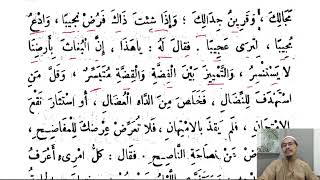 مَجَالِكَ ، وَقَرِينُ جِدَالِكَ ؛ وَإِذَا شِئْتَ ذَاكَ فَرُضْ نَجِيبًا ، وَادْعُ
مُجِيبًا ، لِتَرَى عَجِيبًا . فَقَالَ لَهُ : يَا هَذَا ، إِنَّ الْبُغَاثَ بِأَرْضِنَا
لَا يَسْتَنْسِرُ ، وَالتَّمْيِيزَ بَيْنَ الْفِضَّةِ وَالْقِضَّةِ مُتَيَسِّرٌ ، وَقَلَّ مَنِ
اسْتَهْدَفَ لِلنِّضَالِ ، فَخَلَصَ مِنَ الدَّاءِ الْعُضَالِ ، أَوِ اسْتَثَارَ نَقْعَ
الِامْتِحَانِ ، فَلَمْ يُقْذَ بِالِامْتِهَانِ ، فَلَا تُعَرِّضْ عِرْضَكَ لِلْمَفَاضِحِ ،
عَنْ نَصَاحَةِ النَّاصِحِ . فَقَالَ : كُلُّ امْرِىءٍ أَعْرَفُ